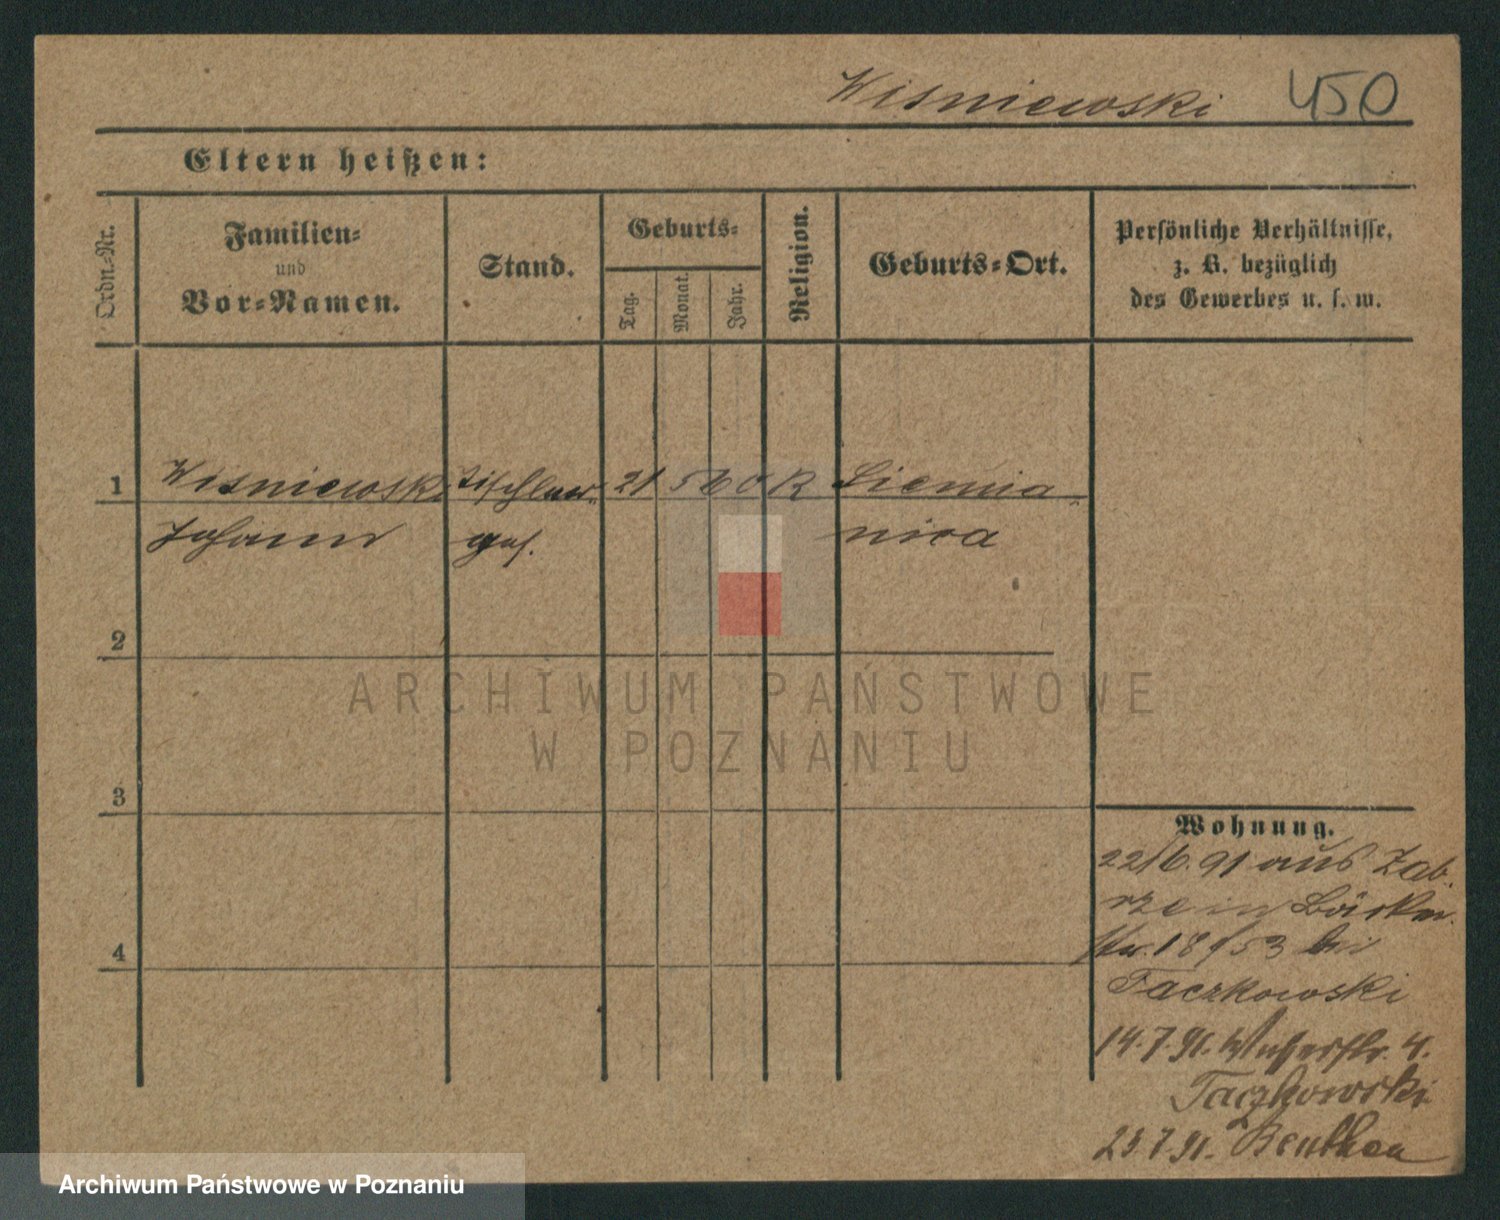 Wisniewski 450
Eltern heißen:
Ordn.-Nr.
Familien-
und
Vor-Namen.
Stand.
Geburts-
Tag.
Monat.
Jahr.
Religion.
Geburts-Ort.
Persönliche Verhältnisse,
z. B. bezüglich
des Gewerbes u. s. w.
1 Wisniewski Tischler- 21 5 60 R Siemia-
Johann ges. nica
2
3
4
Wohnung.
22/6.91 aus Zab-
rze in Bäcker-
str. 18/53 bei
Taczkowski
14.7.91. 4.
Taczkowski
23.7.91. Beuthen
ARCHIWUM PAŃSTWOWE
W POZNANIU
Archiwum Państwowe w Poznaniu